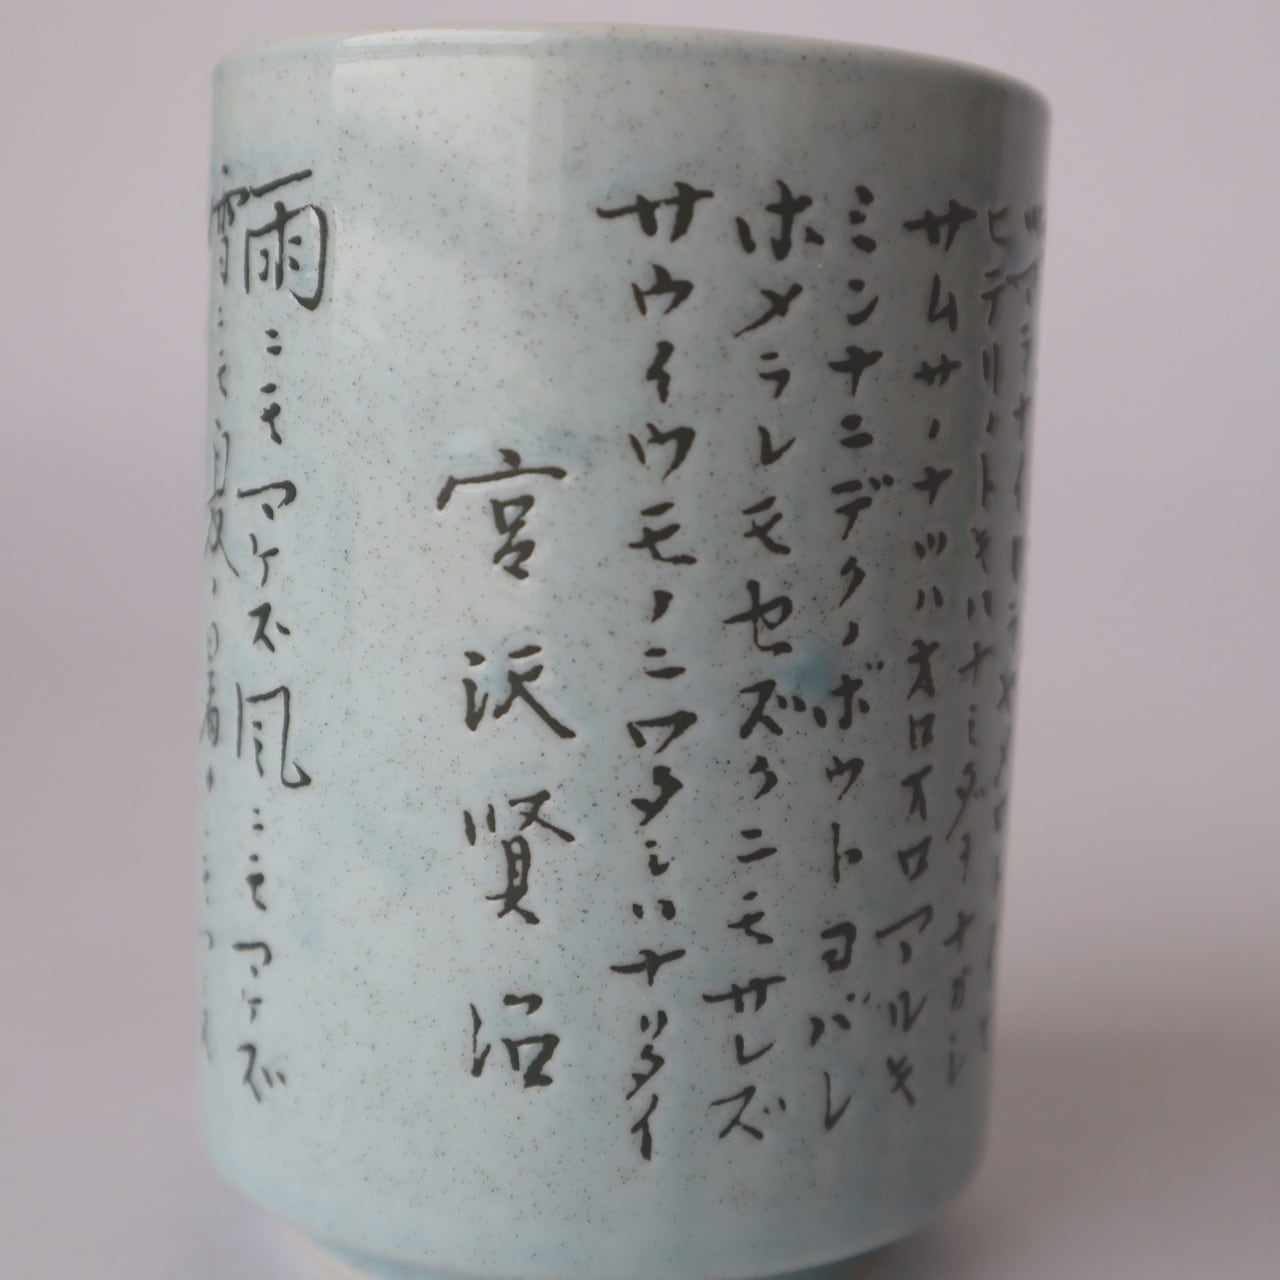 ツマラナイカラヤメロトイヒ
ヒデリノトキハナミダヲナガシ
サムサノナツハオロオロアルキ
ミンナニデクノボウトヨバレ
ホメラレモセズクニモサレズ
サウイウモノニワタシハナリタイ
宮沢賢治
雨ニモマケズ風ニモマケズ
雪ニモ夏ノ暑サニモマケズ